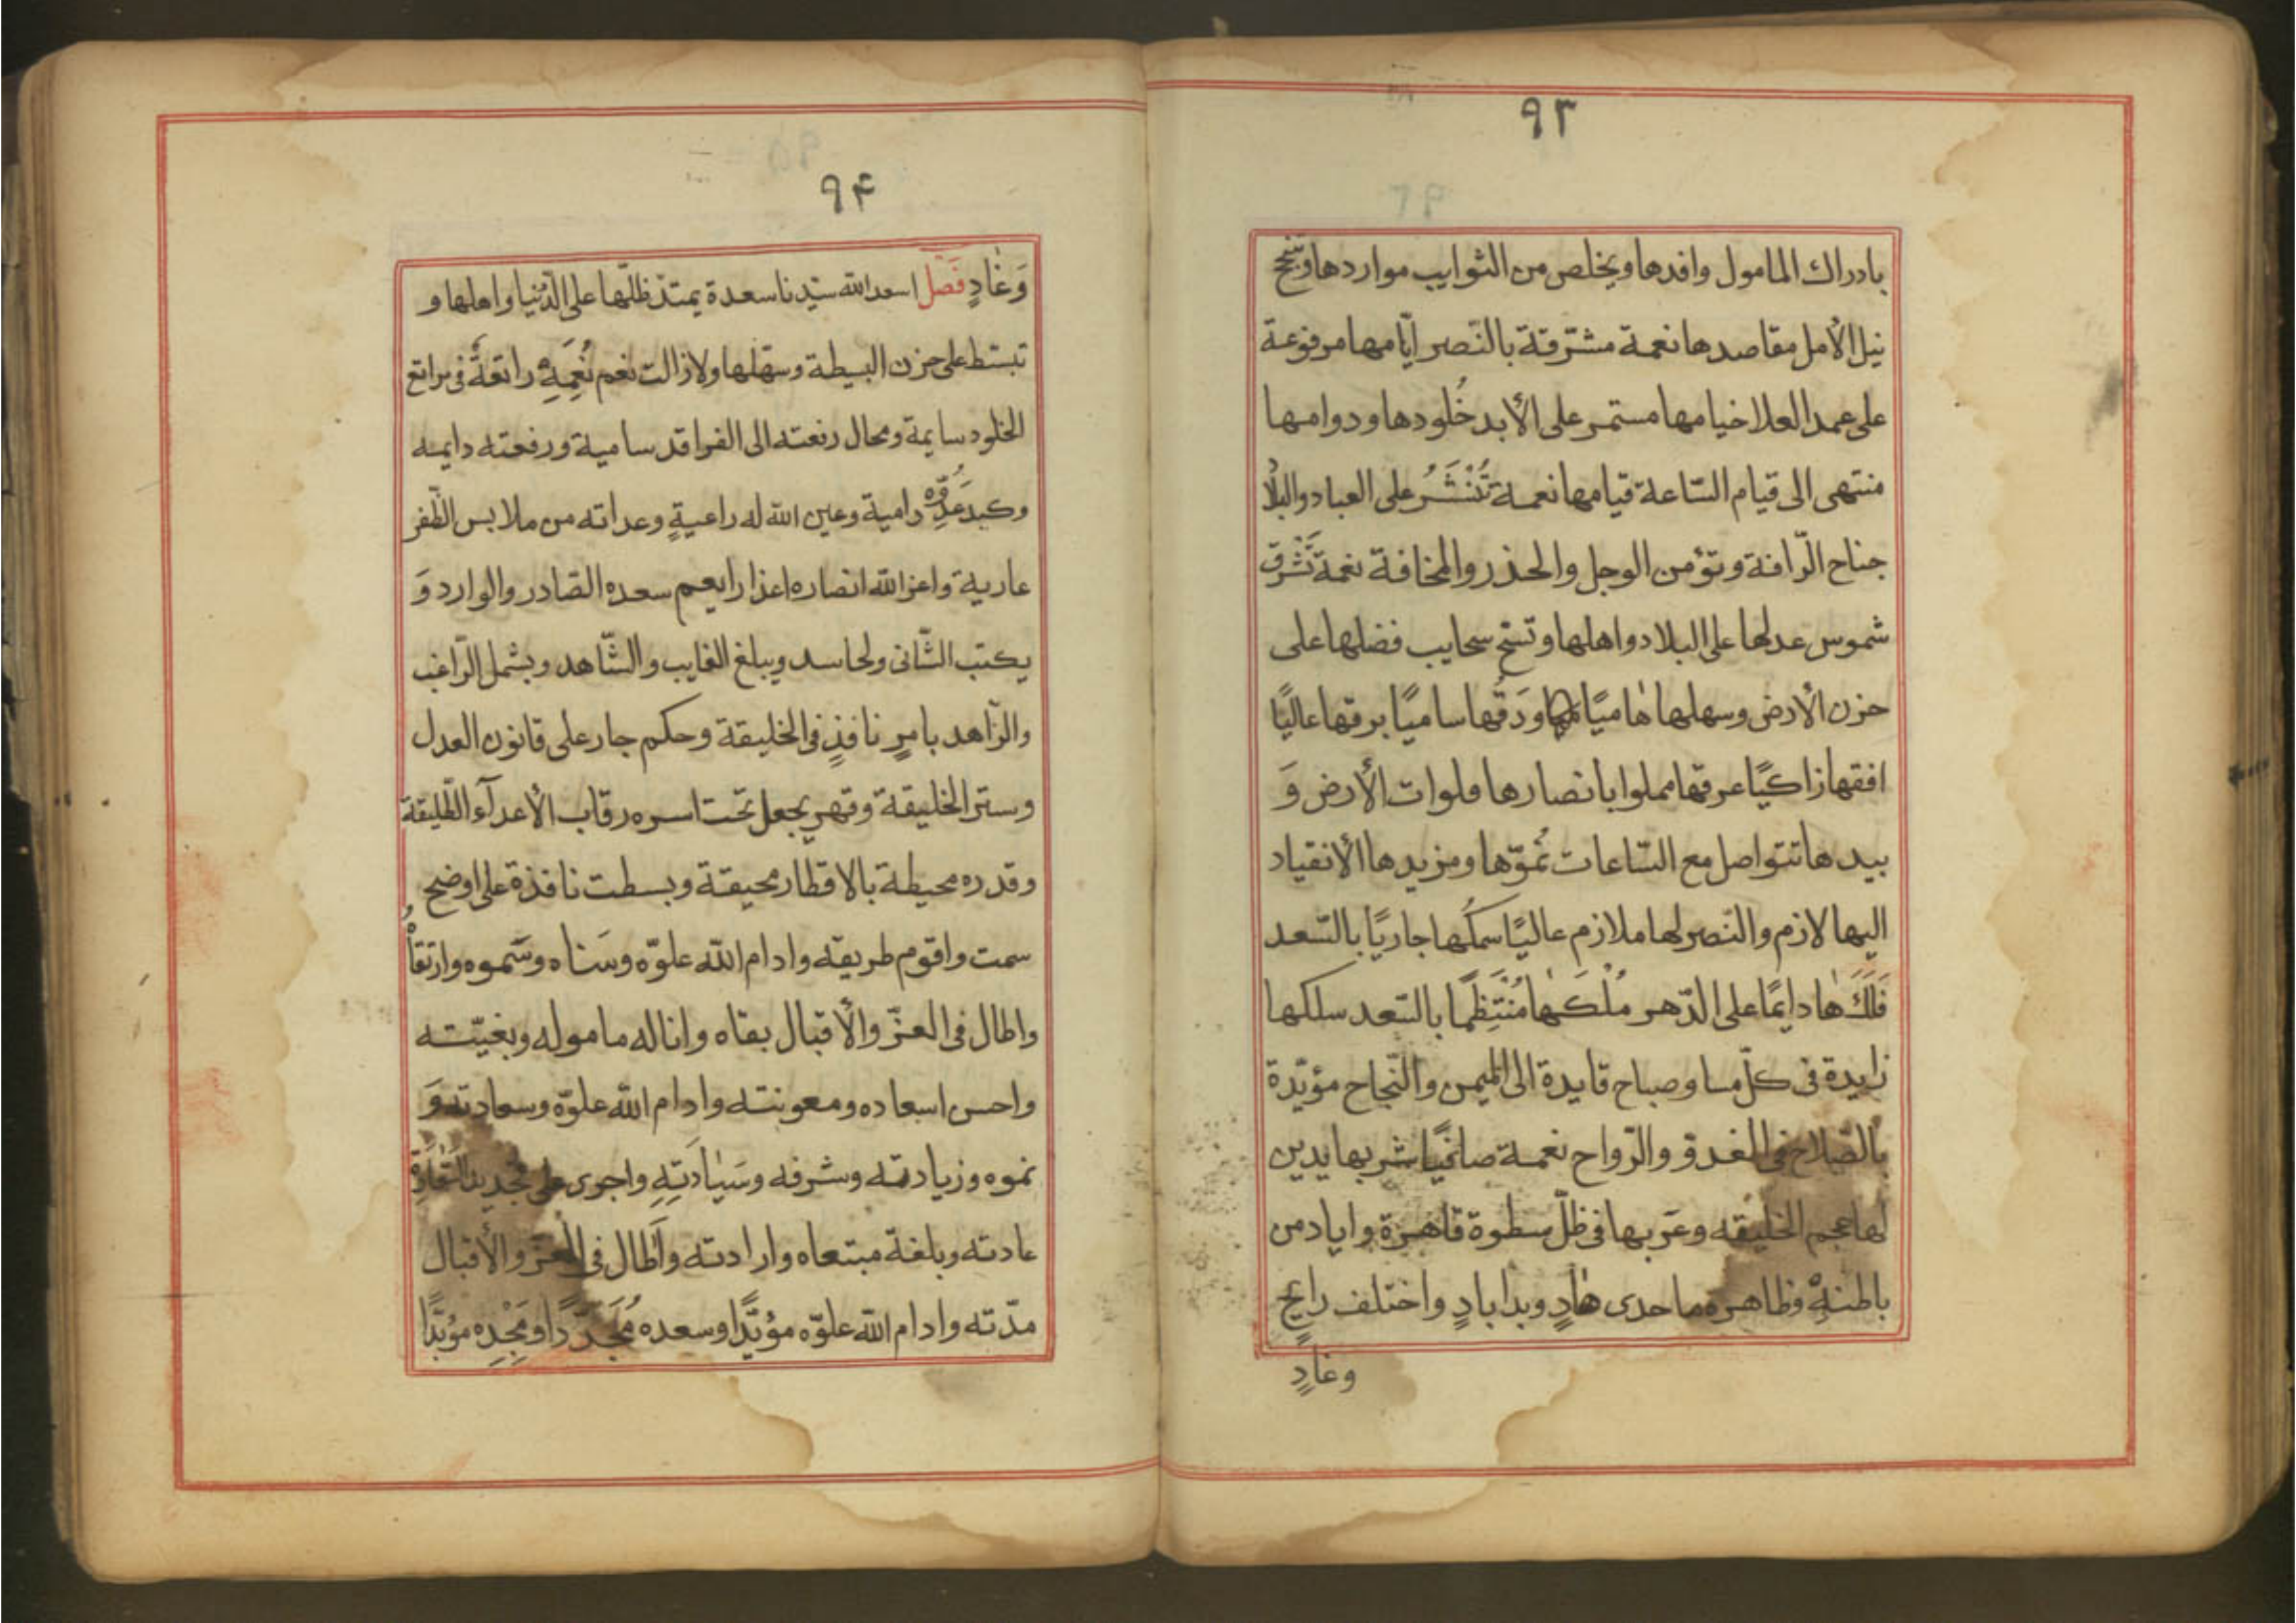 ٩٣
بادراك المامول وافدها ويخلص من الثوايب مواردها وينجح
نيل الأمل مقاصدها نعمة مشرّقة بالنّصر ايّامها مرفوعة
على عمد العلا خيامها مستمر على الأبد خُلودها ودوامها
منتهى الى قيام السّاعة قيامها نعمة تُنْشَرُ على العباد والبلاد
جناح الرّافة وتؤمن الوجل والحذر والمخافة نعمة تَشْرق
شموس عدلها على البلاد واهلها وتسّح سحايب فضلها على
حزن الأرض وسهلها هاميًا ودَقُها ساميًا برقها عاليًا
افقها زاكيًا عرقها مملوا بانصارها فلوات الأرض وَ
بيدها تتواصل مع السّاعات نُموّها ومزيدها الأنقياد
اليها لازم والنّصر لها ملازم عاليًا سمكُها جاريًا بالسّعد
فَلَكَهٰا دايمًا على الدّهر مُلْكَهٰا مُنْتَظِمًا بالسّعد سلكها
زايدة فى كلّ مسا وصباح قايدة الى الميمن والنّجاح مؤيّدة
بالصّلاح فى الغدوّ والرّواح نعمة صافيًا شربها يدين
لها عجم الخليقه وعَربها فى ظلّ سطوة قاهرة واياد من
باطنةٍ وظاهره ما حدى هٰادٍ وبدا بادٍ واختلف رايح
وغادٍ
٩۴
وَغٰادٍ فَصْل اسعد الله سيّدنا سعدة يمتدّ ظلّها على الدّنيا واهلها و
تبسّط على حزن البسيطة وسهلها ولا زالت نعم نُعِمَهِ راتعةً فى مراتع
الخلود سايمة ومحال رفعته الى الفراقد سامية ورفعته دايمه
وكبد عَدُوِّه رامية وعين الله له راعيةٍ وعداته من ملابس الظّفر
عارية واعز الله انصاره اعذارا يعم سعده الصّادر والوارد وَ
يكتب الشّانى ولحاسد ويبلغ الغايب والشّاهد ويشمل الرّاغب
والزّاهد بامرٍ نافذٍ فى الخليقة وحكم جار على قانون العدل
وستر الخليقة وقهرٍ يجعل تحت اسره رقاب الأعدآء الطّليقة
وقدره محيطة بالاقطار محيقة وبسطت نافذة على اوضح
سمت واقوم طريقه وادام الله علوّه وسَناه وسَموه وارتقاُه
واطال فى العزّ والأقبال بقاه واناله ماموله وبغيّته
واحسن اسعاده ومعونته وادام الله علوّه وسعادته وَ
نموه وزيادته وشرفه وسَيٰادَتِهِ واجرى على تجديد السّعادة
عادته وبلغة مبتعاه وارادته واَطال فى العزّ والأقبال
مدّته وادام الله علوّه مؤبّدًا وسعده مُجَدّدًا ومَجْدِه مؤيّدًا